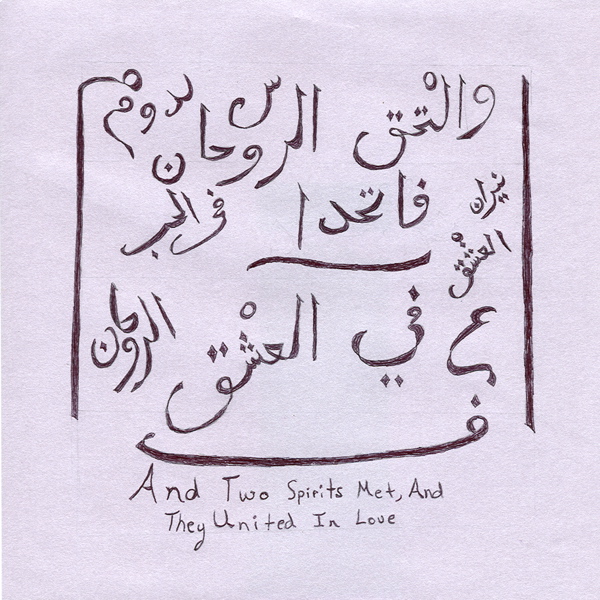 والتحق الروحان
س
فاتحدا في الحب
نيران العشق
في العشق
الروحان
ع
ف
And Two Spirits Met, And
They United In Love